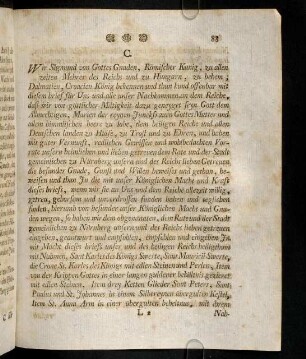 83
C.
Wir Sigmund von Gottes Gnaden, Römischer Kunig, zu allen
zeiten Mehrer des Reichs und zu Hungarn, zu behem,
Dalmatien, Croacien König bekennen und thun kund offenbar mit
diesem brief für Uns und alle unser Nachkommen an dem Reiche,
daß wir von göttlicher Miltigkeit dazu geneyget seyn Gott dem
Almechtigen, Marien der ewgen Junkfr. auch Gottes Mutter und
allem himmlischen heere zu lobe, dem heiligen Reiche und allen
Deutschen landen zu
mit guter Vernunft,
unsere heimlichen und lieben getreuen dem Rate und der Stadt
gemeiniclichen zu Nürnberg unsern und des Reichs lieben Getreuen
die besunder Gnade, Gunst und Willen beweiset und
ben, und thun In die mit unser Königlichen Macht und Kraft
dieses briefs, wenn wir sie an Uns und dem Reiche allezeit willig,
getreu, gehorsam und
funden, hiernach von besunder unser Königlichen Macht und Gna-
den wegen, so haben wir den abgenannten, dem Rate und der Stadt
gemeiniclichen zu Nürnberg unsern und des Reichs lieben getreuen
eingeben,
mit Macht dieses briefs unser und des heiligen Reichs heiligthum
mit Nahmen, Sant Karles des Königs Swerte, Sant Mauricii Swerte,
die Crone St. Karles des Königs mit allen Steinen und Perlen, Item
von der Krippen Gottes in einer langen guldenen
mit edlen Steinen. Item drey Ketten Glieder Sant Peters, Sant
Paulus und St. Johannes in einem
Item St. Anna Arm in einer übergulten behältnus, mit
L 2
Nah-